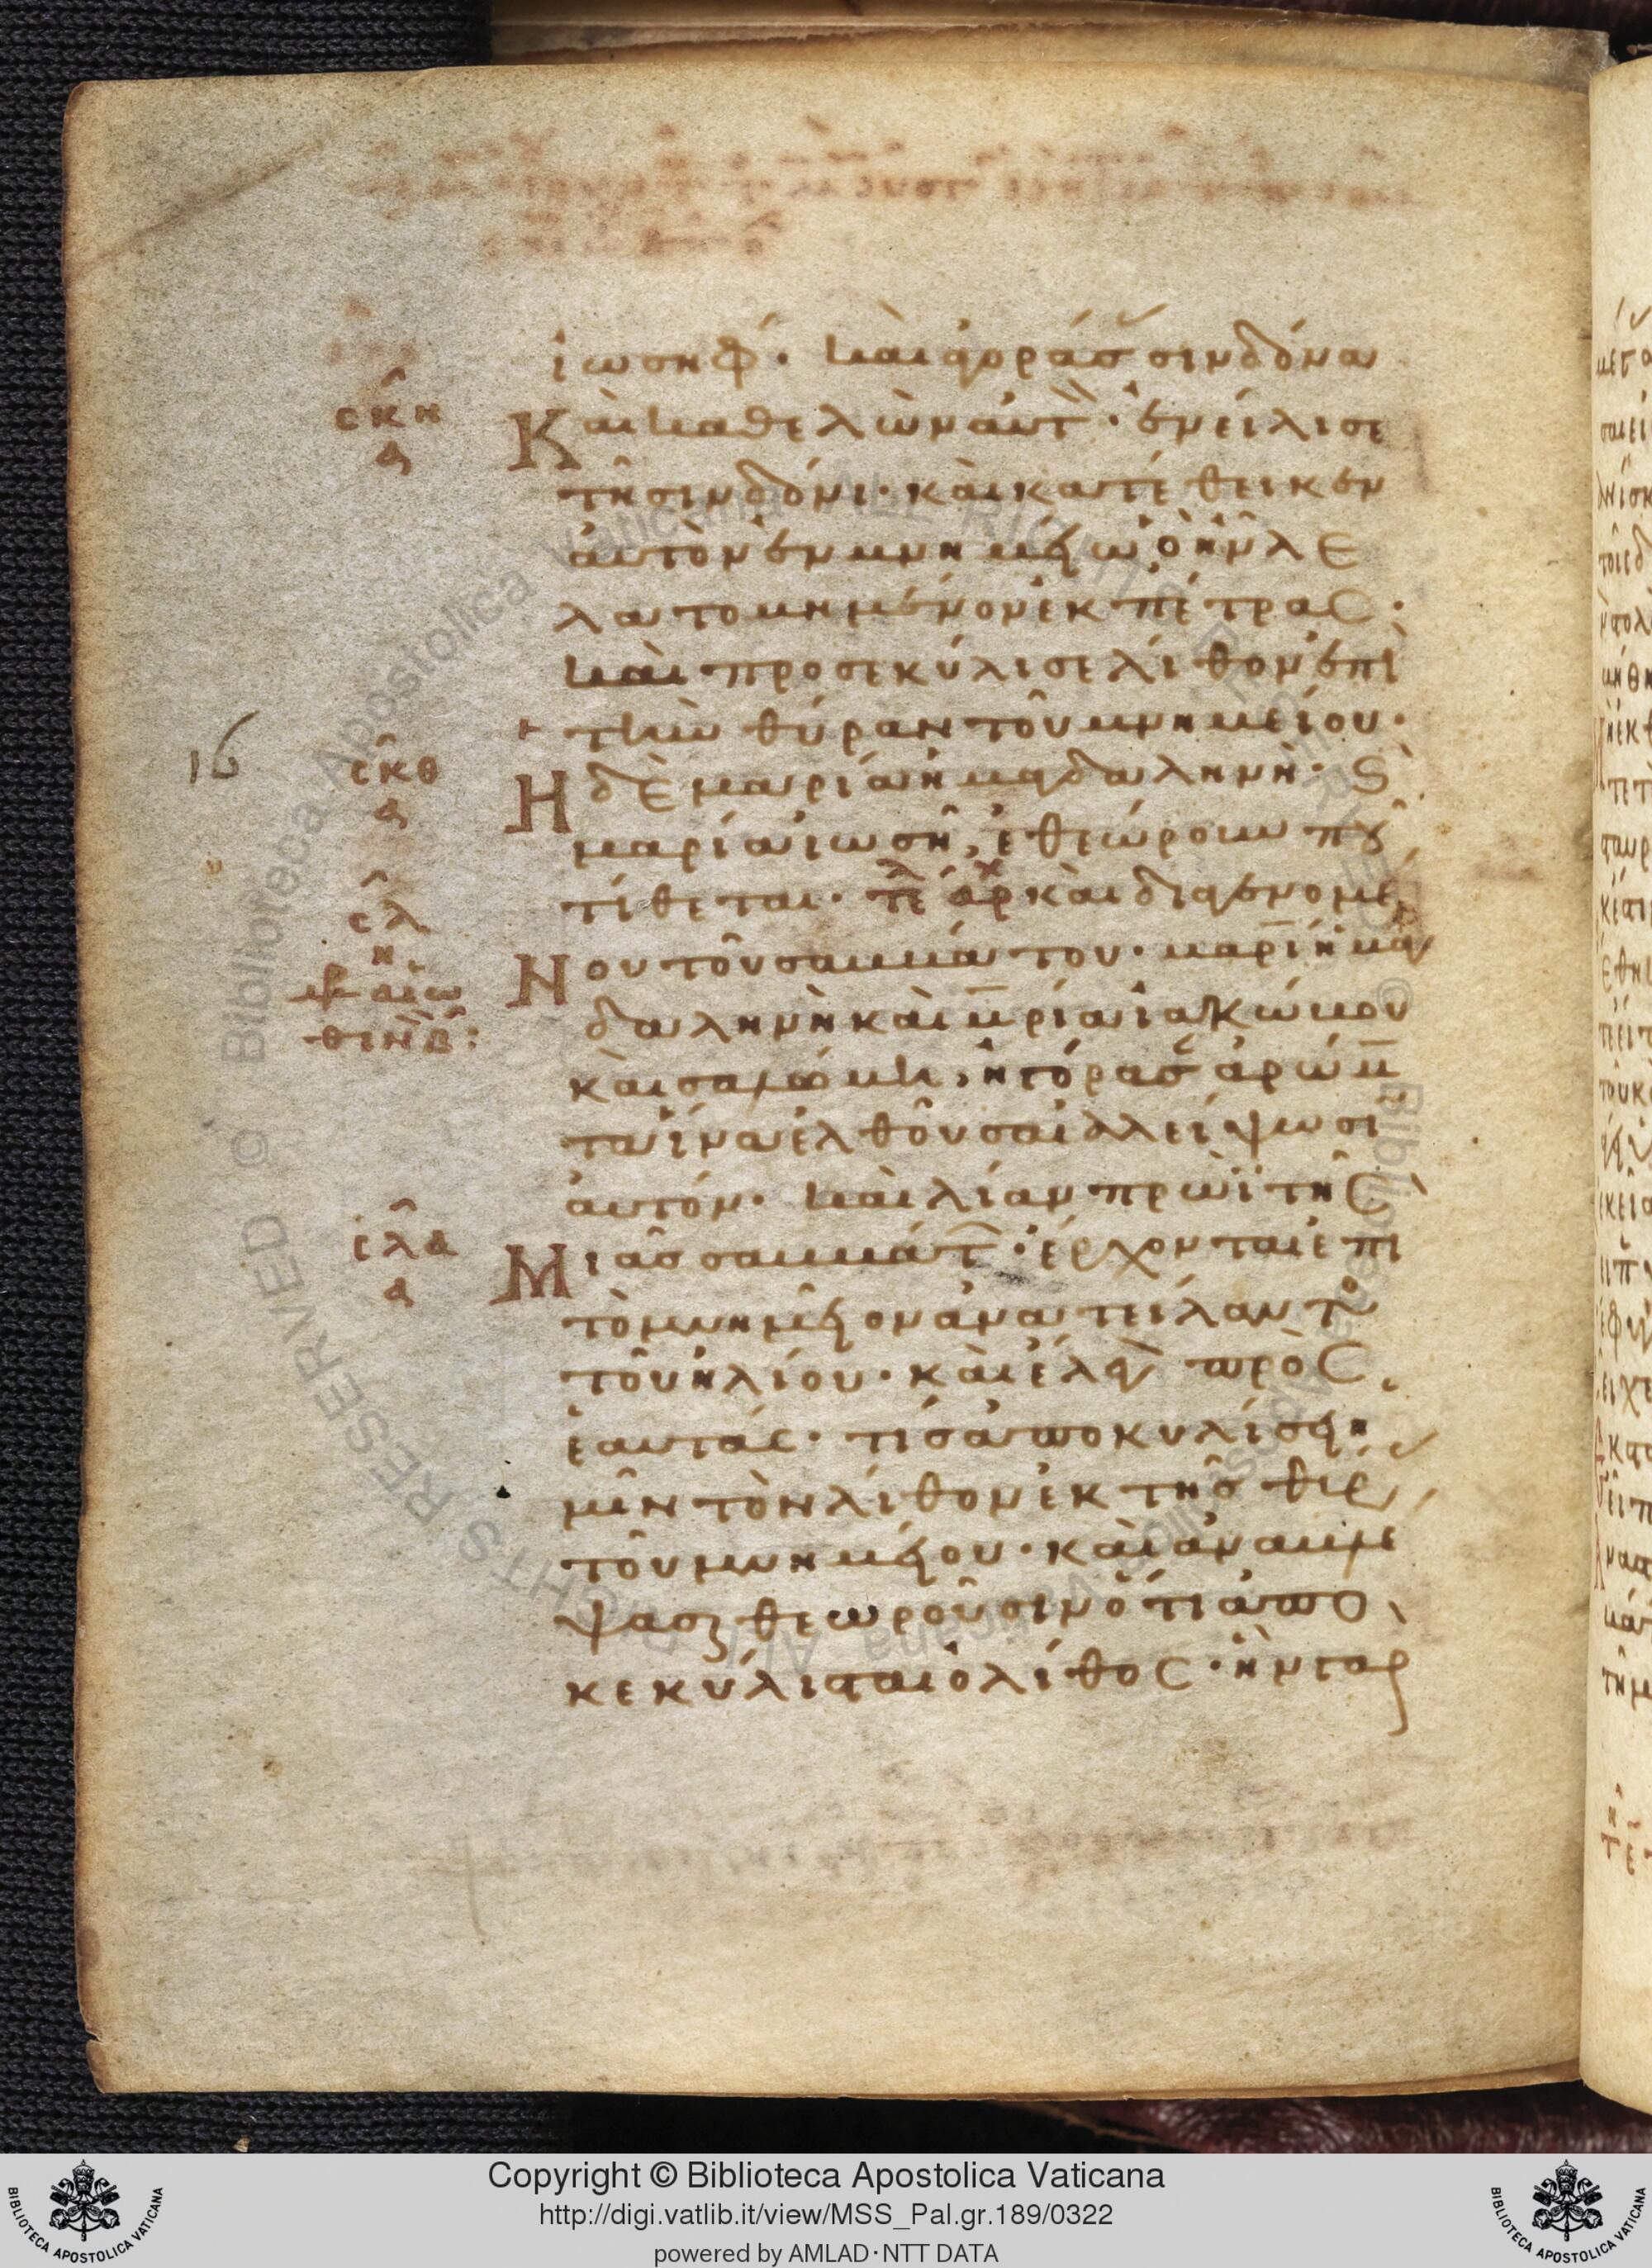 ἰωσήφ· καὶ ἀγοράσας σινδόνα
Καὶ καθελὼν αὐτὸν· ἐνείλισε
τῆ σινδόνι· καὶ κατέθεικεν
ἀυτὸν ἐν μνημείω ὃ ἦν λε
λατομημένον ἐκ πέτρας·
καὶ προσεκύλισε λίθον ἐπὶ
τὴν θύραν τοῦ μνημείου·
σκη
α
16
σκθ
α
Ἡ δὲ μαρία ἡ μαγδαληνὴ· ϗ
μαρία ἰωσῆ, ἐθεώρουν ποῦ
τίθεται· τελ αρχ καὶ διαγενομέ
σλ
η
Νου τοῦ σαμμάτου· μαρία ἡ μαγ
εωθινὸν β:
δαληνὴ καὶ μαρία ἰακώμου
καὶ σαλώμη, ἠγόρασαν ἀρώμα
τα ἵνα ἐλθοῦσαι ἀλείψωσιν
ἀυτόν· καὶ λίαν πρωῒ τῆς
σλα
α
Μιᾶς σαμμάτων· ἔρχονται ἐπὶ
τὸ μνημεῖον ἀνατείλαντος
τοῦ ἡλίου· καὶ ἔλεγον πρὸς
ἑαυτάς· τίς ἀποκυλίσει ἡ
μῖν τὸν λίθον ἐκ τῆς θύρας
τοῦ μνημείου· καὶ ἀναμλέ
ψασαι θεωροῦσιν ὅτι ἀπο
κεκύλισται ὁ λίθος· ἦν γὰρ
Copyright © Biblioteca Apostolica Vaticana
http://digi.vatlib.it/view/MSS_Pal.gr.189/0322
powered by AMLAD·NTT DATA